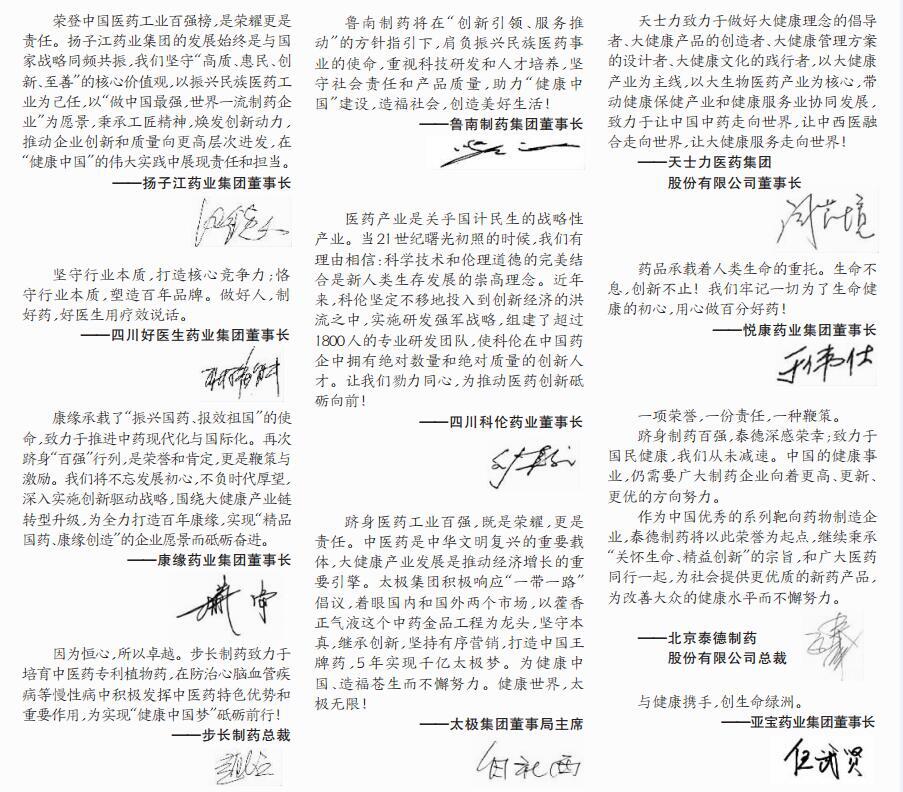 荣登中国医药工业百强榜，是荣耀更是
责任。扬子江药业集团的发展始终是与国
家战略同频共振，我们坚守“高质、惠民、创
新、至善”的核心价值观，以振兴民族医药工
业为己任，以“做中国最强，世界一流制药企
业”为愿景，秉承工匠精神，焕发创新动力，
推动企业创新和质量向更高层次迸发，在
“健康中国”的伟大实践中展现责任和担当。
——扬子江药业集团董事长
坚守行业本质，打造核心竞争力；恪
守行业本质，塑造百年品牌。做好人，制
好药，好医生用疗效说话。
——四川好医生药业集团董事长
康缘承载了“振兴国药、报效祖国”的使
命，致力于推进中药现代化与国际化。再次
跻身“百强”行列，是荣誉和肯定，更是鞭策与
激励。我们将不忘发展初心，不负时代厚望，
深入实施创新驱动战略，围绕大健康产业链
转型升级，为全力打造百年康缘，实现“精品
国药、康缘创造”的企业愿景而砥砺奋进。
——康缘药业集团董事长
因为恒心，所以卓越。步长制药致力于
培育中医药专利植物药，在防治心脑血管疾
病等慢性病中积极发挥中医药特色优势和
重要作用，为实现“健康中国梦”砥砺前行！
——步长制药总裁
鲁南制药将在“创新引领、服务推
动”的方针指引下，肩负振兴民族医药事
业的使命，重视科技研发和人才培养，坚
守社会责任和产品质量，助力“健康中
国”建设，造福社会，创造美好生活！
——鲁南制药集团董事长
医药产业是关乎国计民生的战略性
产业。当21世纪曙光初照的时候，我们有
理由相信：科学技术和伦理道德的完美结
合是新人类生存发展的崇高理念。近年
来，科伦坚定不移地投入到创新经济的洪
流之中，实施研发强军战略，组建了超过
1800人的专业研发团队，使科伦在中国药
企中拥有绝对数量和绝对质量的创新人
才。让我们勠力同心，为推动医药创新砥
砺向前！
——四川科伦药业董事长
跻身医药工业百强，既是荣耀，更是
责任。中医药是中华文明复兴的重要载
体，大健康产业发展是推动经济增长的重
要引擎。太极集团积极响应“一带一路”
倡议，着眼国内和国外两个市场，以藿香
正气液这个中药金品工程为龙头，坚守本
真，继承创新，坚持有序营销，打造中国王
牌药，5年实现千亿太极梦。为健康中
国、造福苍生而不懈努力。健康世界，太
极无限！
——太极集团董事局主席
天士力致力于做好大健康理念的倡导
者、大健康产品的创造者、大健康管理方案
的设计者、大健康文化的践行者，以大健康
产业为主线，以大生物医药产业为核心，带
动健康保健产业和健康服务业协同发展，
致力于让中国中药走向世界，让中西医融
合走向世界，让大健康服务走向世界！
——天士力医药集团
股份有限公司董事长
药品承载着人类生命的重托。生命不
息，创新不止！我们牢记一切为了生命健
康的初心，用心做百分好药！
——悦康药业集团董事长
于伟仕
一项荣誉，一份责任，一种鞭策。
跻身制药百强，泰德深感荣幸；致力于
国民健康，我们从未减速。中国的健康事
业，仍需要广大制药企业向着更高、更新、
更优的方向努力。
作为中国优秀的系列靶向药物制造企
业，泰德制药将以此荣誉为起点，继续秉承
“关怀生命、精益创新”的宗旨，和广大医药
同行一起，为社会提供更优质的新药产品，
为改善大众的健康水平而不懈努力。
——北京泰德制药
股份有限公司总裁
与健康携手，创生命绿洲。
——亚宝药业集团董事长
任武贤